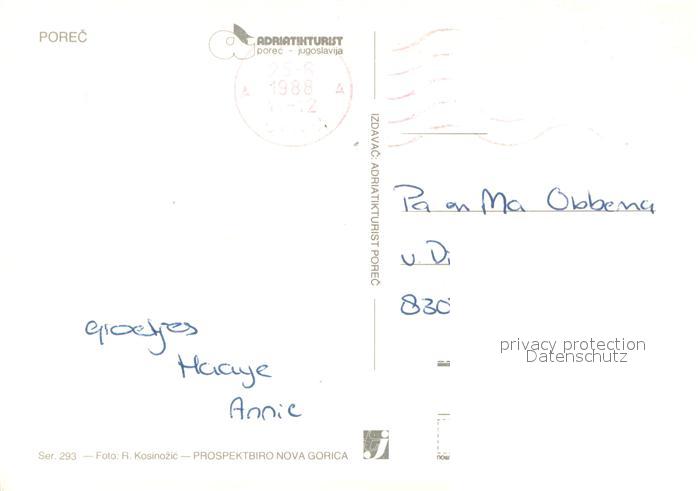 POREČ
ADRIATIKTURIST
poreč - jugoslavija
1988
IZDAVAČ: ADRIATIKTURIST POREČ
Pa en Ma Obbema
v. Di
830
privacy protection
Datenschutz
groetjes
Haaye
Annie
Ser. 293 — Foto: R. Kosinožić — PROSPEKTBIRO NOVA GORICA